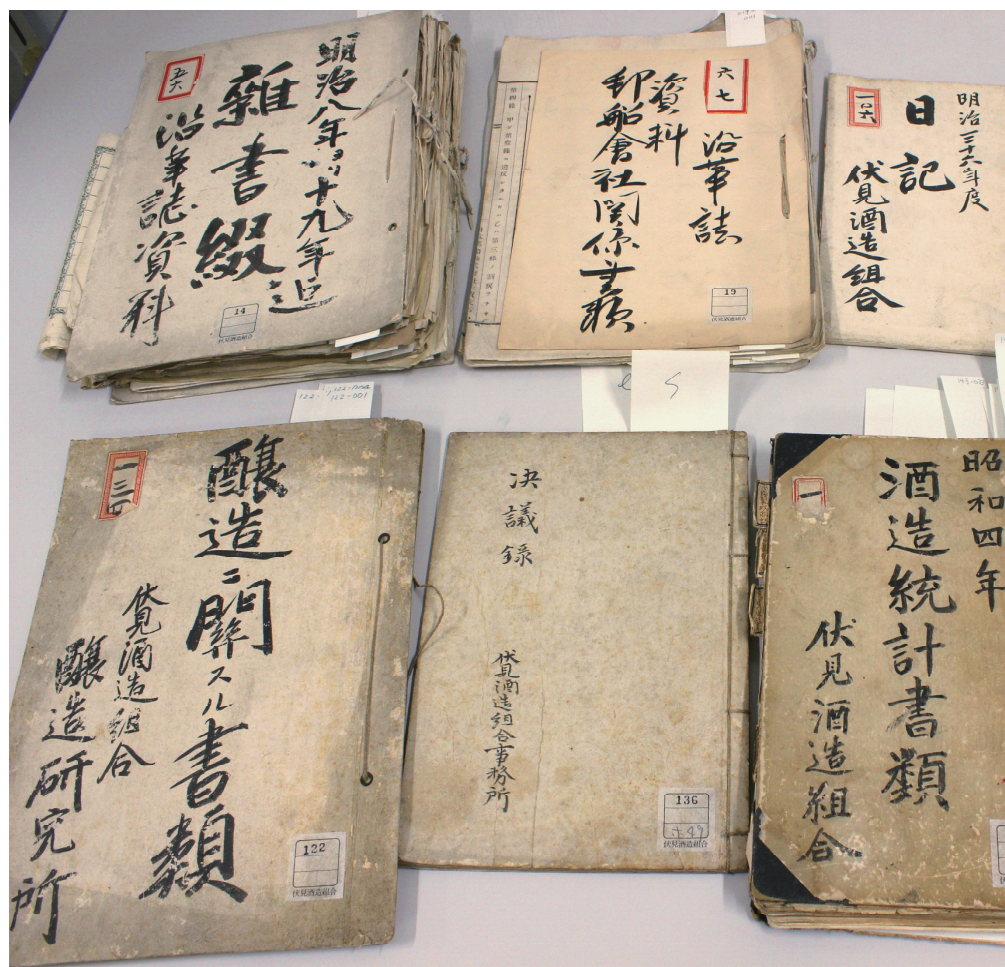 明治八年ヨリ十九年迄
雜書綴
沿革誌資料
五六
14
伏見酒造組合
六七
沿革誌
資料
郵船會社関係書類
19
伏見酒造組合
明治三十六年度
日記
伏見酒造組合
一〇六
122-001
醸造ニ関スル書類
伏見酒造組合
醸造研究所
122
伏見酒造組合
決議録
伏見酒造組合事務所
136
伏見酒造組合
昭和四年
酒造統計書類
伏見酒造組合
一